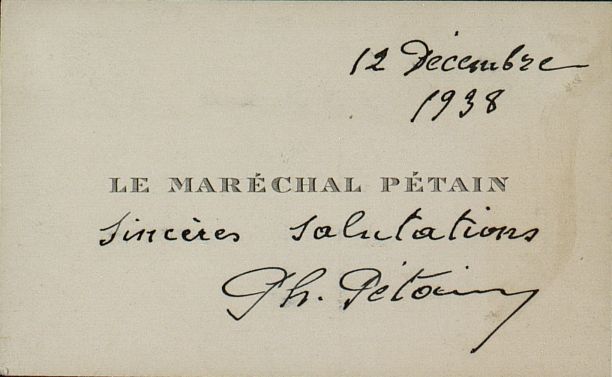 12 Décembre
1938
LE MARÉCHAL PÉTAIN
sincères salutations
Ph. Pétain